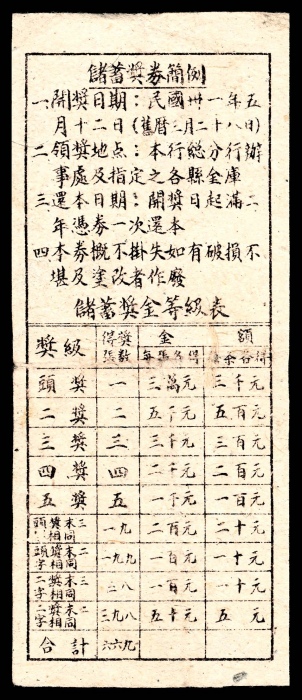 儲蓄獎券簡例
一、開獎日期：民國卅一年五
月十二日(舊曆三月二十八日)
二、領獎地点：本行總分行辦
事處及指定之各縣金庫
三、還本日期：開獎日起滿二
年憑券一次還本
四、本券概不掛失如有破損不
堪及塗改者作廢
儲蓄獎金等級表
獎級 得獎張數 金額
每張各得
頭獎 一 三萬元 三千元
二獎 二 五千元 五百元
三獎 三 三千元 三百元
四獎 四 二千元 二百元
五獎 五 一千元 一百元
頭獎末三字相同 一九 二百元 二十元
頭獎末二字相同 一九九 一百元 一十元
二獎末三字相同 三八 一百元 一十元
二獎末二字相同 三九八 五十元 五元
合計 六六九